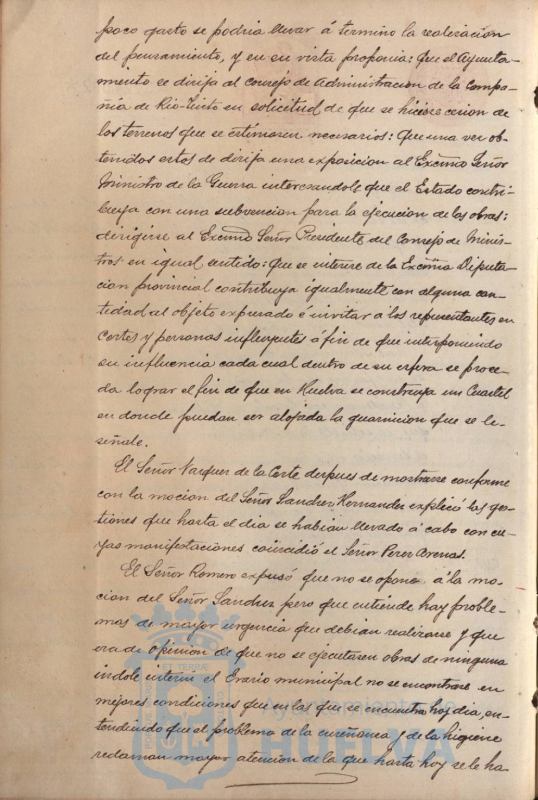 poco gasto se podria llevar á termino la realizacion
del pensamiento, y en su vista proponia: Que el Ayunta-
miento se dirija al Consejo de Administracion de la Compa-
ñia de Rio-Tinto en solicitud de que se hiciere cesion de
los terrenos que se estimasen necesarios: Que una vez ob-
tenidos estos se dirija una exposicion al Excmo Señor
Ministro de la Guerra interesandole que el Estado contri-
buya con una subvencion para la ejecucion de las obras:
dirigirse al Excmo Señor Presidente del Consejo de Minis-
tros en igual sentido: Que se interese de la Excma Diputa-
cion provincial contribuya igualmente con alguna can-
tidad al objeto expresado é invitar a los representantes en
Cortes y personas influyentes á fin de que interponiendo
su influencia cada cual dentro de su esfera se proce-
da lograr el fin de que en Huelva se construya un Cuartel
en donde puedan ser alojada la guarnicion que se le
señale.
El Señor Vazquez de la Corte despues de mostrarse conforme
con la mocion del Señor Sanchez Hernandez explicó las ges-
tiones que hasta el dia se habian llevado á cabo con cu-
yas manifestaciones coincidió el Señor Perez Arenas.
El Señor Romero expusó que no se opone á la mo-
cion del Señor Sanchez pero que entiende hay proble-
mas de mayor urgencia que debian realizarse y que
era de opinion de que no se ejecutasen obras de ninguna
indole interin el Erario municipal no se encontrase en
mejores condiciones que en las que se encuentra hoy dia, en-
tendiendo que el problema de la enseñanza y de la higiene
reclaman mayor atencion de la que hasta hoy se le ha
Ayuntamiento de
HUELVA